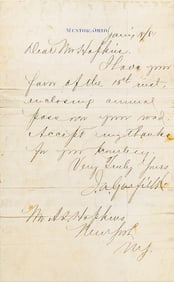 MENTOR, OHIO
Dear Mr Hopkins.
I have your
favor of the 15th inst,
enclosing annual
pass over your road.
Accept my thanks
for your courtesy
Very Truly Yours
J.A. Garfield
Mr A.S. Hopkins,
New York
N.Y.